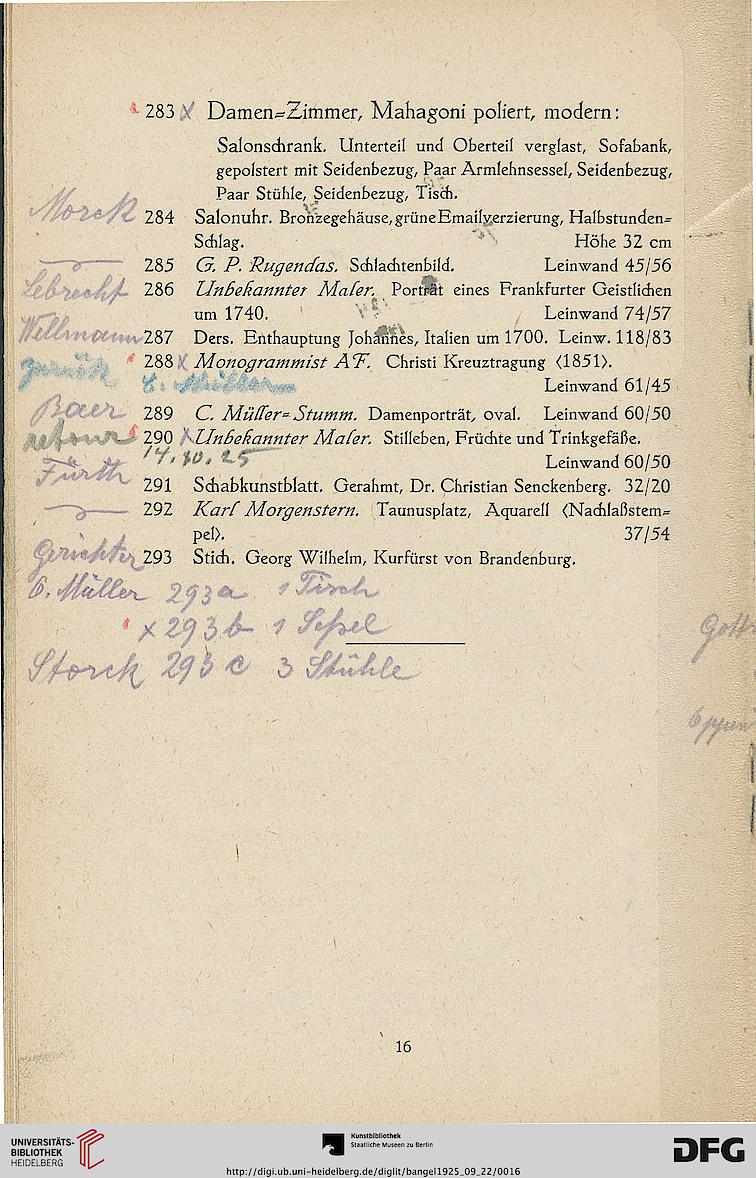 283 x Damen-Zimmer, Mahagoni poliert, modern:
Salonschrank. Unterteil und Oberteil verglast, Sofabank,
gepolstert mit Seidenbezug, Paar Armlehnsessel, Seidenbezug,
Paar Stühle, Seidenbezug, Tisch.
Morck 284 Salonuhr. Bronzegehäuse, grüne Emailverzierung, Halbstunden-
Schlag. Höhe 32 cm
285 G. P. Rugendas. Schlachtenbild. Leinwand 45/56
Lebrecht 286 Unbekannter Maler. Porträt eines Frankfurter Geistlichen
um 1740. Leinwand 74/57
Wellmann 287 Ders. Enthauptung Johannes, Italien um 1700. Leinw. 118/83
zurück 288 x Monogrammist AF. Christi Kreuztragung <1851>.
Leinwand 61/45
Baer 289 C. Müller-Stumm. Damenporträt, oval. Leinwand 60/50
retour 290 x Unbekannter Maler. Stilleben, Früchte und Trinkgefäße.
14.10.25 Leinwand 60/50
Fürth 291 Schabkunstblatt. Gerahmt, Dr. Christian Senckenberg. 32/20
292 Karl Morgenstern. Taunusplatz, Aquarell <Nachlaßstem-
pel>. 37/54
Gerichter 293 Stich. Georg Wilhelm, Kurfürst von Brandenburg.
Müller 293a 1 Tisch
x 293b 1 Seßel
Storck 293c 3 Stühle
16
UNIVERSITÄTS-
BIBLIOTHEK
HEIDELBERG
Kunstbibliothek
Staatliche Museen zu Berlin
http://digi.ub.uni-heidelberg.de/diglit/bangel1925_09_22/0016
DFG